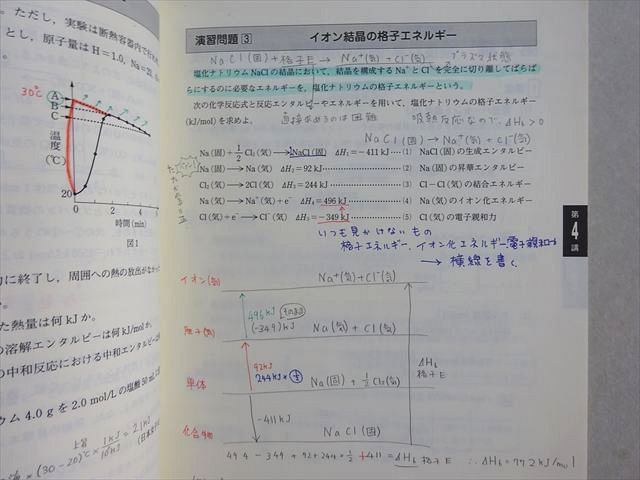 ただし, 実験は断熱容器内で行わ
とし, 原子量は H=1.0, Na=23,
30℃
A
B
C
温度(℃)
20
0 2 4 6
時間 (min)
図1
に終了し, 周囲への熱の放出がなかっ
た熱量は何 kJ か。
の溶解エンタルピーは何 kJ/mol か。
の中和反応における中和エンタルピー
ウム 4.0 g を 2.0 mol/L の塩酸 50 ml
×(30-20)℃× 1kJ/10³J = 2.1kJ
演習問題 3 イオン結晶の格子エネルギー
NaCl(固)+格子E → Na⁺(気)+Cl⁻(気) プラズマ状態
塩化ナトリウム NaCl の結晶において, 結晶を構成する Na⁺ と Cl⁻ を完全に切り離してばらば
らにするのに必要なエネルギーを, 塩化ナトリウムの格子エネルギーという。
次の化学反応式と反応エンタルピーやエネルギーを用いて, 塩化ナトリウムの格子エネルギー
(kJ/mol) を求めよ。 直接求めるのは困難 吸熱反応なので、ΔH₆>0
NaCl(固) → Na⁺(気)+Cl⁻(気)
Na(固)+1/2Cl₂(気) → 1NaCl(固) ΔH₁=−411 kJ ……(1) NaCl(固)の生成エンタルピー
Na(固) → Na(気) ΔH₂=92 kJ ……(2) Na(固)の昇華エンタルピー
Cl₂(気) → 2Cl(気) ΔH₃=244 kJ ……(3) Cl−Cl(気)の結合エネルギー
Na(気) → Na⁺(気)+e⁻ ΔH₄=496 kJ ……(4) Na(気)のイオン化エネルギー
Cl(気)+e⁻ → Cl⁻(気) ΔH₅=−349 kJ ……(5) Cl(気)の電子親和力
いつも見かけないもの
格子エネルギー、イオン化エネルギー電子親和力
→ 横線を書く。
第4講
イオン(気) Na⁺(気)+Cl⁻(気)
496kJ そのまま
(-349)kJ
原子(気) Na(気)+Cl(気)
92kJ
244kJ×1/2
ΔH₆
格子E
単体 Na(固)+1/2Cl₂(気)
-411kJ
化合物 NaCl(固)
494 - 349 + 92 + 244×1/2 + 411 = ΔH₆ 格子E ∴ ΔH₆=772kJ/mol